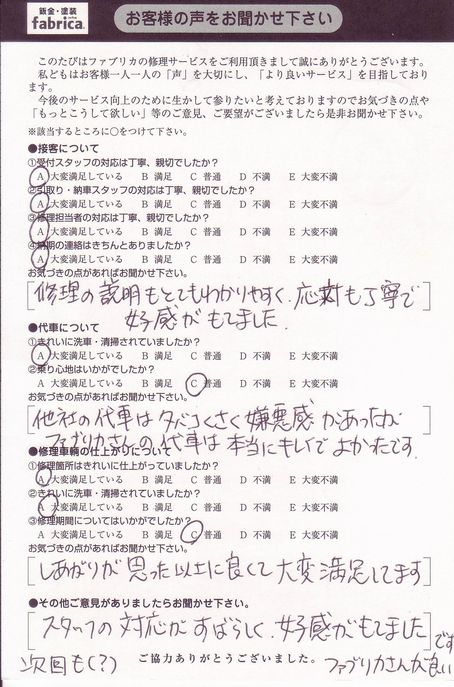 鈑金・塗装
fabrica.
お客様の声をお聞かせ下さい
このたびはファブリカの修理サービスをご利用頂きまして誠にありがとうございます。
私どもはお客様一人一人の「声」を大切にし、「より良いサービス」を目指しており
ます。
今後のサービス向上のために生かして参りたいと考えておりますのでお気づきの点や
「もっとこうして欲しい」等のご意見、ご要望がございましたら是非お聞かせ下さい。
※該当するところに○をつけて下さい。
●接客について
①受付スタッフの対応は丁寧、親切でしたか?
A 大変満足している B 満足 C 普通 D 不満 E 大変不満
②引取り・納車スタッフの対応は丁寧、親切でしたか?
A 大変満足している B 満足 C 普通 D 不満 E 大変不満
③修理担当者の対応は丁寧、親切でしたか?
A 大変満足している B 満足 C 普通 D 不満 E 大変不満
④納期の連絡はきちんとありましたか?
A 大変満足している B 満足 C 普通 D 不満 E 大変不満
お気づきの点があればお聞かせ下さい。
修理の説明もとてもわかりやすく、応対も丁寧で
好感がもてました。
●代車について
①きれいに洗車・清掃されていましたか?
A 大変満足している B 満足 C 普通 D 不満 E 大変不満
②乗り心地はいかがでしたか?
A 大変満足している B 満足 C 普通 D 不満 E 大変不満
お気づきの点があればお聞かせ下さい。
他社の代車はタバコくさく嫌悪感があったが
ファブリカさんの代車は本当にキレイでよかったです。
●修理車輌の仕上がりについて
①修理箇所はきれいに仕上がっていましたか?
A 大変満足している B 満足 C 普通 D 不満 E 大変不満
②きれいに洗車・清掃されていましたか?
A 大変満足している B 満足 C 普通 D 不満 E 大変不満
③修理期間についてはいかがでしたか?
A 大変満足している B 満足 C 普通 D 不満 E 大変不満
お気づきの点があればお聞かせ下さい。
しあがりが思った以上に良くて大変満足してます
●その他ご意見がありましたらお聞かせ下さい。
スタッフの対応がすばらしく、好感がもてました
次回も(?) ファブリカさんが良い
です
ご協力ありがとうございました。